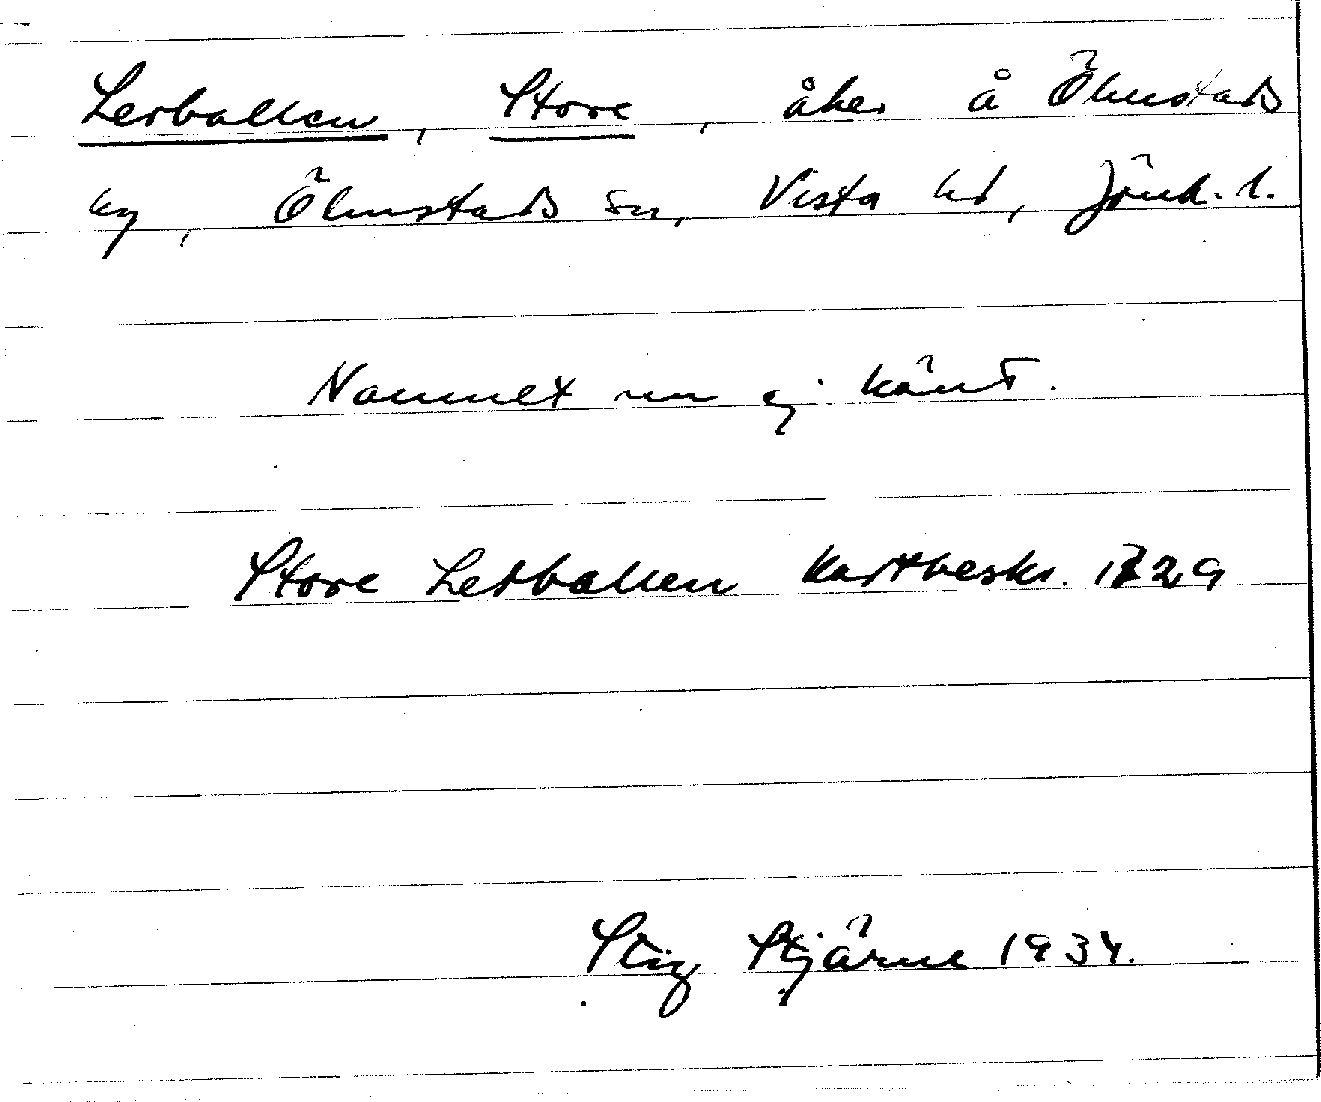 Lerballen, Store, åker å Ölmstads
by, Ölmstads sn, Vista hd, Jönk. l.
Namnet nu ej känt.
Store Lerballen Kartbeskr. 1729
Stig Stjärne 1934.